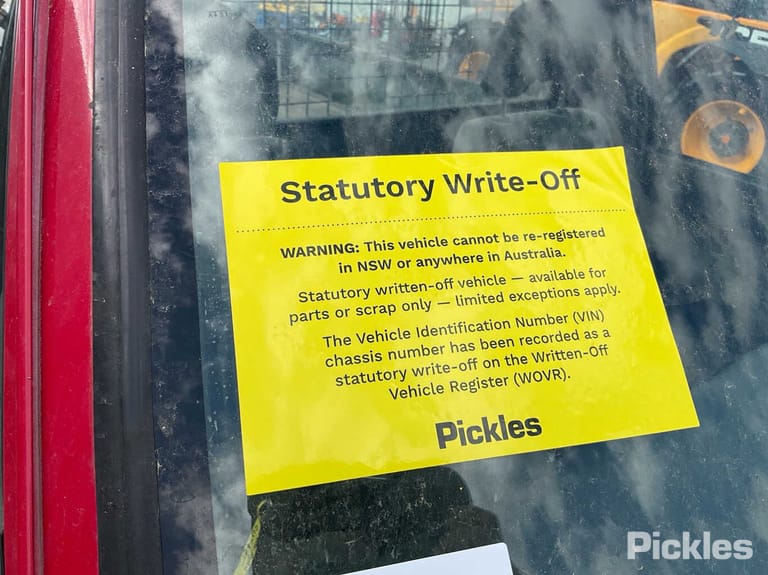 Statutory Write-Off
WARNING: This vehicle cannot be re-registered
in NSW or anywhere in Australia.
Statutory written-off vehicle — available for
parts or scrap only — limited exceptions apply.
The Vehicle Identification Number (VIN)
chassis number has been recorded as a
statutory write-off on the Written-Off
Vehicle Register (WOVR).
Pickles
Pickles